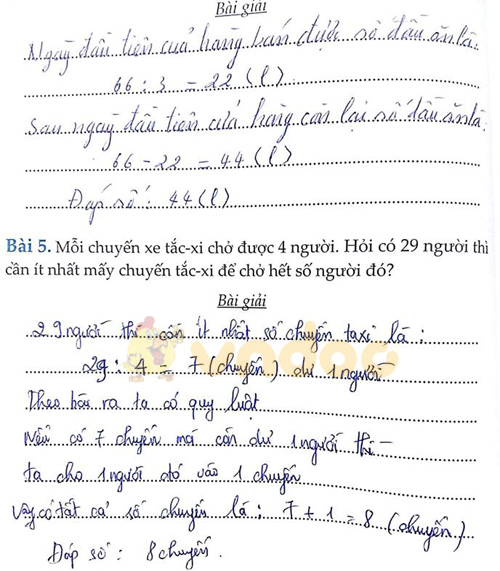 Bài giải
Ngày đầu tiên cửa hàng bán được số dầu ăn là:
66 : 3 = 22 (l)
Sau ngày đầu tiên cửa hàng còn lại số dầu ăn là:
66 - 22 = 44 (l)
Đáp số: 44 (l)
Bài 5. Mỗi chuyến xe tắc-xi chở được 4 người. Hỏi có 29 người thì
cần ít nhất mấy chuyến tắc-xi để chở hết số người đó?
Bài giải
29 người thì cần ít nhất số chuyến taxi là:
29 : 4 = 7 (chuyến) dư 1 người
Theo bài ra ta có quy luật
Nếu có 7 chuyến mà còn dư 1 người thì
ta cho 1 người đó vào 1 chuyến
Vậy có tất cả số chuyến là: 7 + 1 = 8 (chuyến)
Đáp số: 8 chuyến.
vndoc